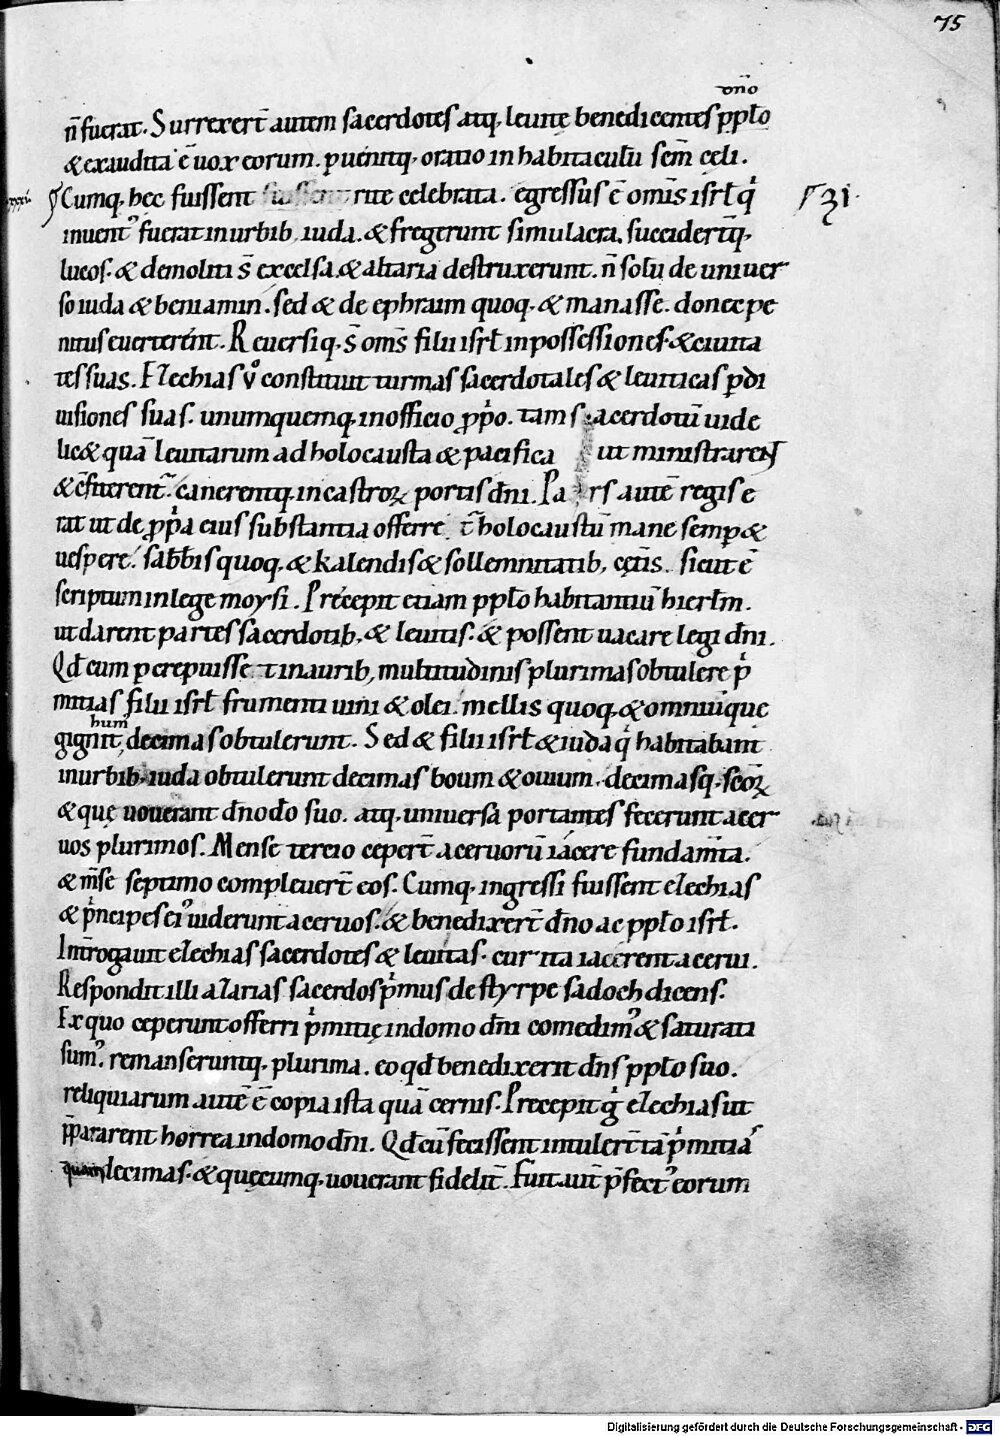 75
dño
n̄ fuerat. Surrexer̄t autem sacerdotes atq; leuite benedicentes pp̱ło
& exaudita ē uox eorum. p̱uenitq; oratio in habitaculū sc̄m celi.
Cumq; hec fuissent rite celebrata. egressus ē omīs isrł q'
xxxi.
31.
inuent' fuerat in urbib; iuda. & fregerunt simulacra. succidertq;
lucos. & demoliti s̄ excelsa. & altaria destruxerunt. n̄ solū de uniuer
so iuda & beniamin. sed & de ephraim quoq; & manasse. donec pe
nitus euerterent. Reuersiq; s̄ om̄s filii isrł in possessiones. & ciuita
tes suas. Ezechias v° constituit turmas sacerdotales & leuiticas p̱ di
uisiones suas. unumquemq; in officio p̱p'o. tam sacerdotū uide
lic& quā leuitarum ad holocausta & pacifica ut ministrarent
& c̄fiterent'. canerentq; in castroꝝ portis dn̄i. Pars autē regis e
rat ut de p̱p'a eius substantia offerret' holocaustū mane semp̱ &
uespere. sabb̄is quoq; & kalendis & sollemnitatib; cęt̄is. sicut ē
scriptum in lege moysi. Precepit etiam pp̱ło habitantiū hierłm.
ut darent partes sacerdotib; & leuitis. & possent uacare legi dn̄i.
Qd̄ cum p̱crepuisset in aurib; multitudinis plurimas obtulere p'
mitias filii isrł frumenti uini & olei. mellis quoq; & omniū que
hum'
gignit, decimas obtulerunt. Sed & filii isrł & iuda q' habitabant
in urbib; iuda obtulerunt decimas boum & ouium. decimasq; sc̄oꝝ
& quę uouerant dn̄o dō suo. atq; uniuersa portantes fecerunt acer
uos plurimos. Mense tercio ceper̄t aceruorū iacere fundam̄ta.
& m̄se septimo compleuer̄t eos. Cumq; ingressi fuissent ezechias
& p'ncipes ei' uiderunt aceruos. & benedixer̄t dn̄o ac pp̱ło isrł.
Int̄rogauit ezechias sacerdotes & leuitas. cur ita iacerent acerui.
Respondit illi azarias sacerdos p'mus de styrpe sadoch dicens.
Ex quo ceperunt offerri p'mitię in domo dn̄i comedim' & saturati
sum'. remanseruntq; plurima. eo qd̄ benedixerit dn̄s pp̱ło suo.
reliquiarum autē ē copia ista quā cernis. Precepit g' ezechias ut
p̄pararent horrea in domo dn̄i. Qd̄ cū fecissent intuler̄t tā p'mitias
quam decimas. & quęcumq; uouerant fidelit̄. Fuit aut̄ p̄fect' eorum
Digitalisierung gefördert durch die Deutsche Forschungsgemeinschaft - DFG